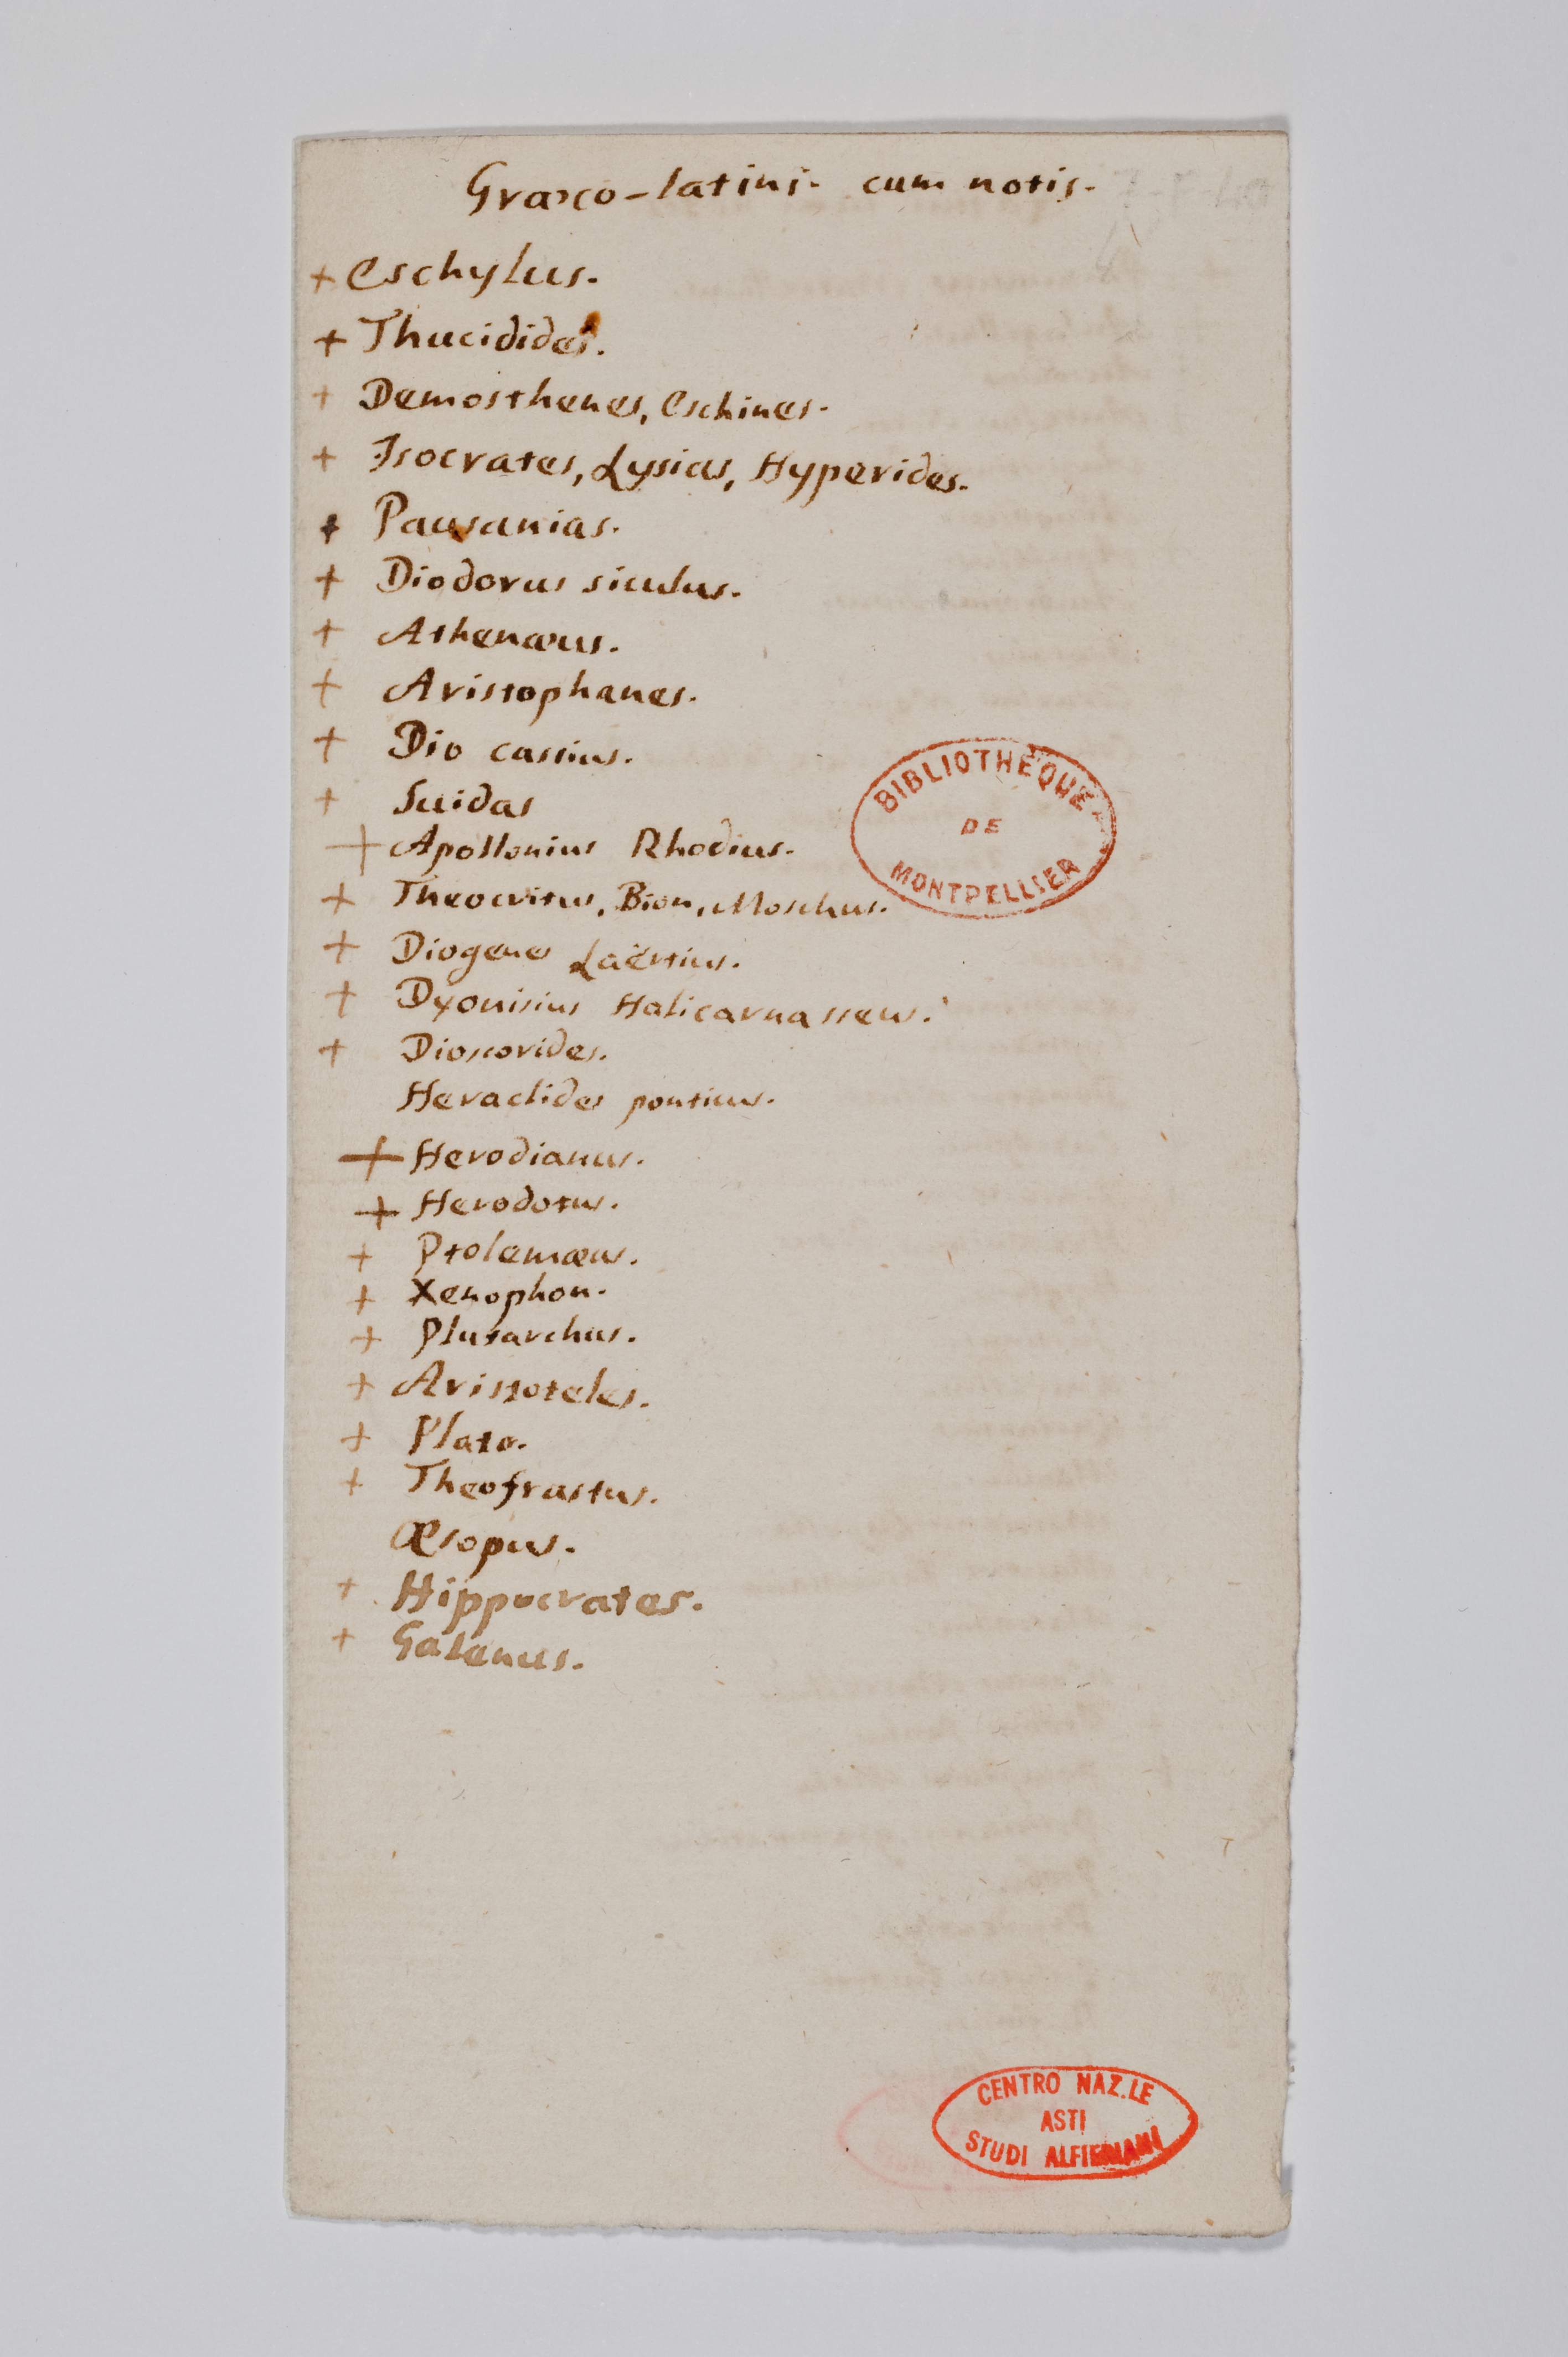 Græco-latini. cum notis.
+ Eschylus.
+ Thucidides.
+ Demosthenes, Eschines.
+ Isocrates, Lysias, Hyperides.
+ Pausanias.
+ Diodorus siculus.
+ Athenæus.
+ Aristophanes.
+ Dio cassius.
+ Suidas
+ Apollonius Rhodius.
+ Theocritus, Bion, Moschus.
+ Diogenes Laërtius.
+ Dyonisius Halicarnasseus.
+ Dioscorides.
Heraclides ponticus.
+ Herodianus.
+ Herodotus.
+ Ptolemæus.
+ Xenophon.
+ Plutarchus.
+ Aristoteles.
+ Plato.
+ Theofrastus.
Æsopus.
+ Hippocrates.
+ Galenus.
BIBLIOTHÈQUE
DE
MONTPELLIER
CENTRO NAZ.LE
ASTI
STUDI ALFIERIANI